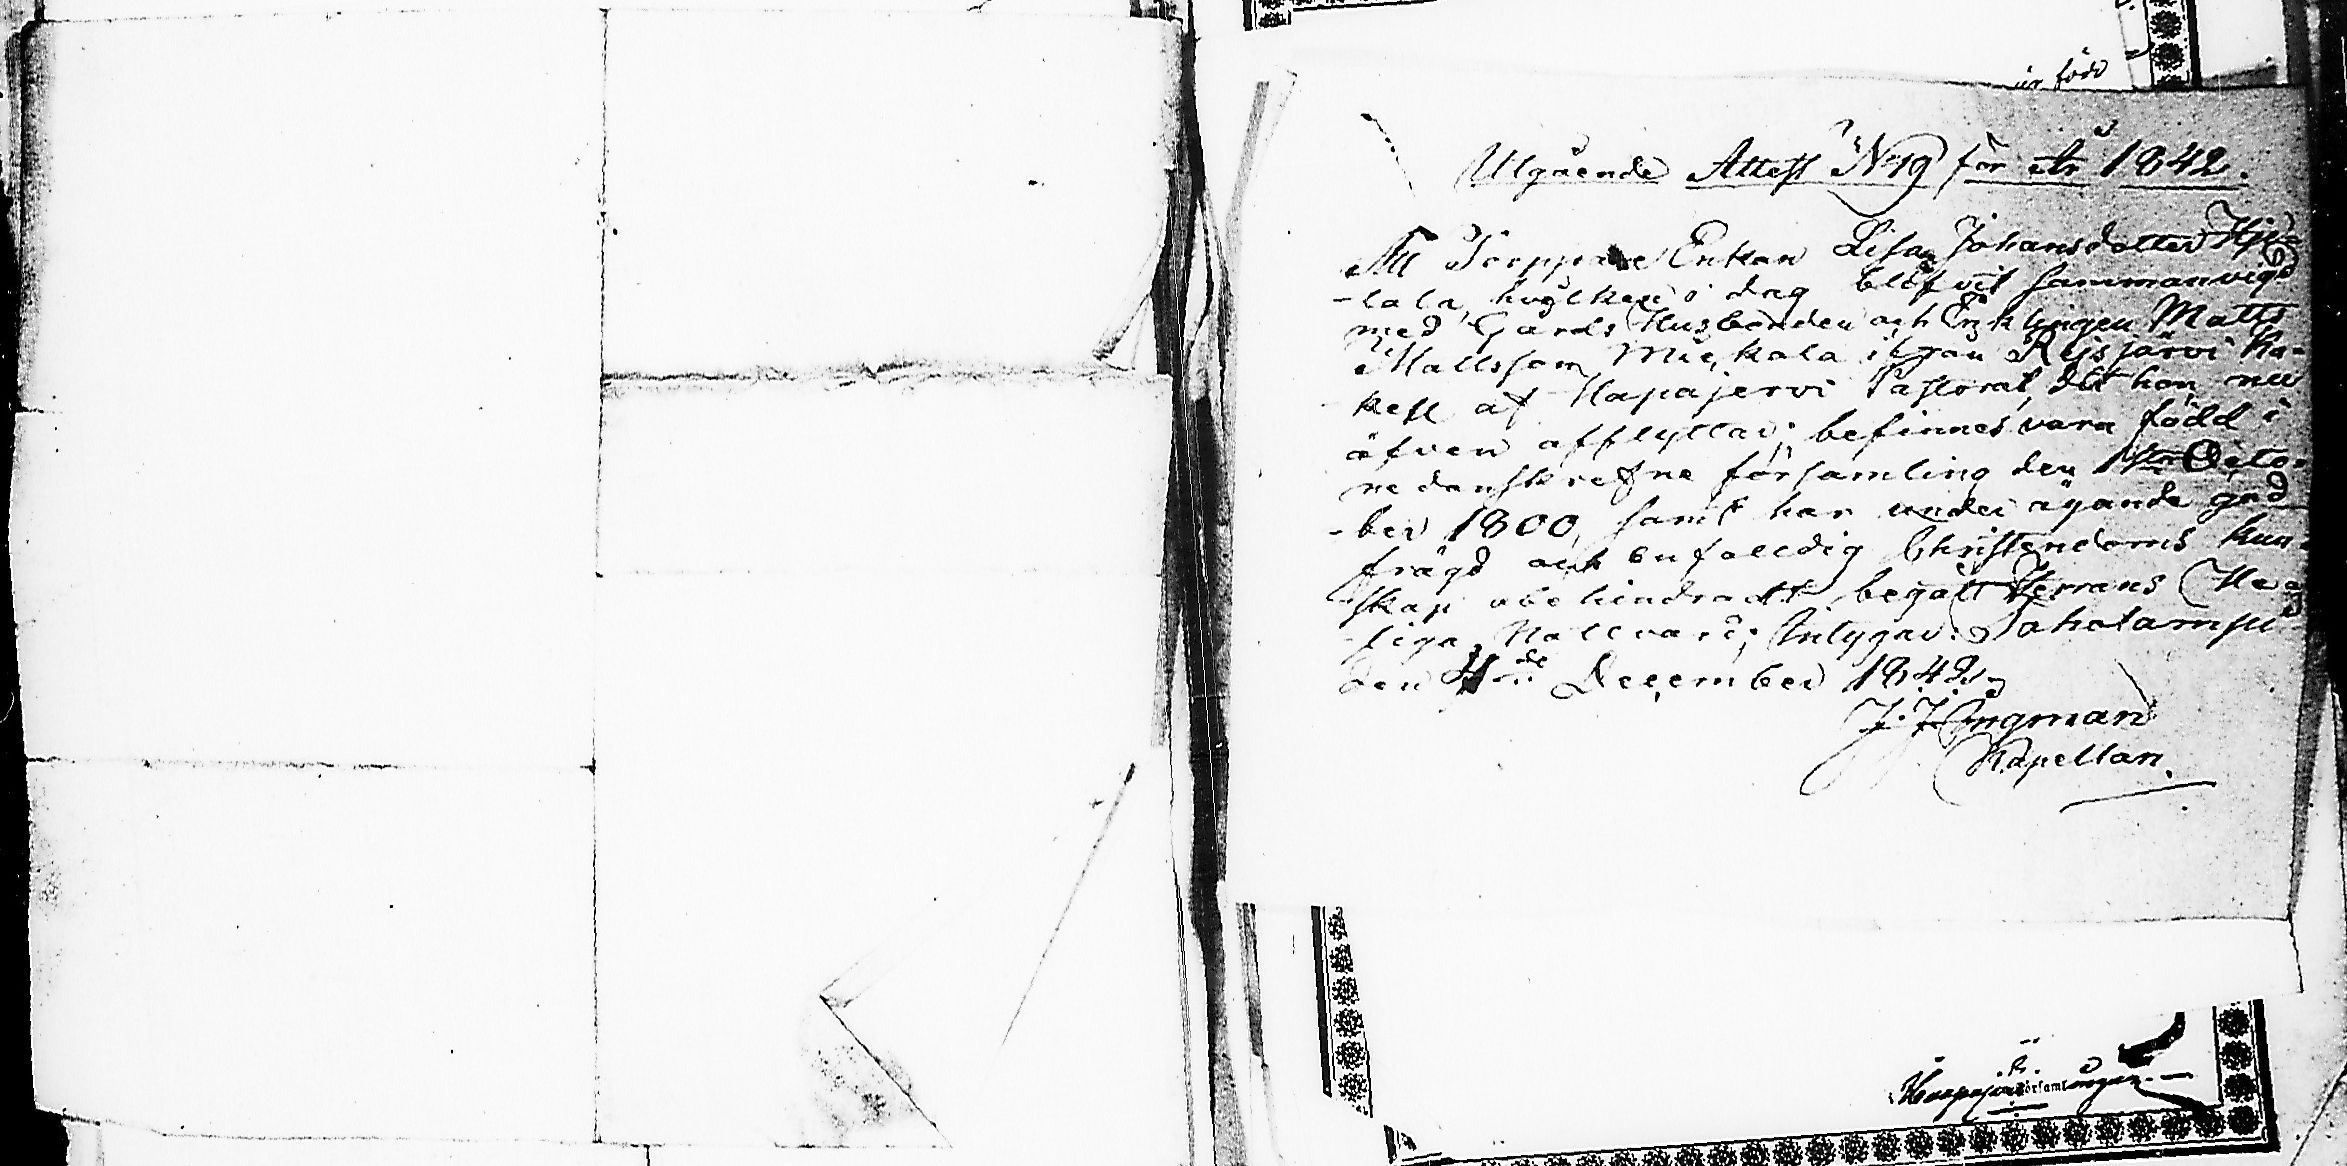 är född
Utgående Attest N:19 för År 1842.
Att Torppare Enkan Lisa Johansdotter Hje-
-lala, hvilken i dag blifvit sammanvigd
med Gårds Husbonden och Enklingen Matts
Mattsson Mickala ifrån Reisjärvi Ka-
pell af Hapajervi Pastorat, dit hon nu
äfven afflyttar; befinnes vara född i
nedanskrefne församling den 1sta Octo-
-ber 1800, samt har under ägande god
frägd och enfalldig Christendoms kun-
skap obehindradt begått Herrans He-
liga Nattvard; Intygar: Toholampi
den 4de December 1842.
J. J. Ingman
Kapellan.
församlingen.